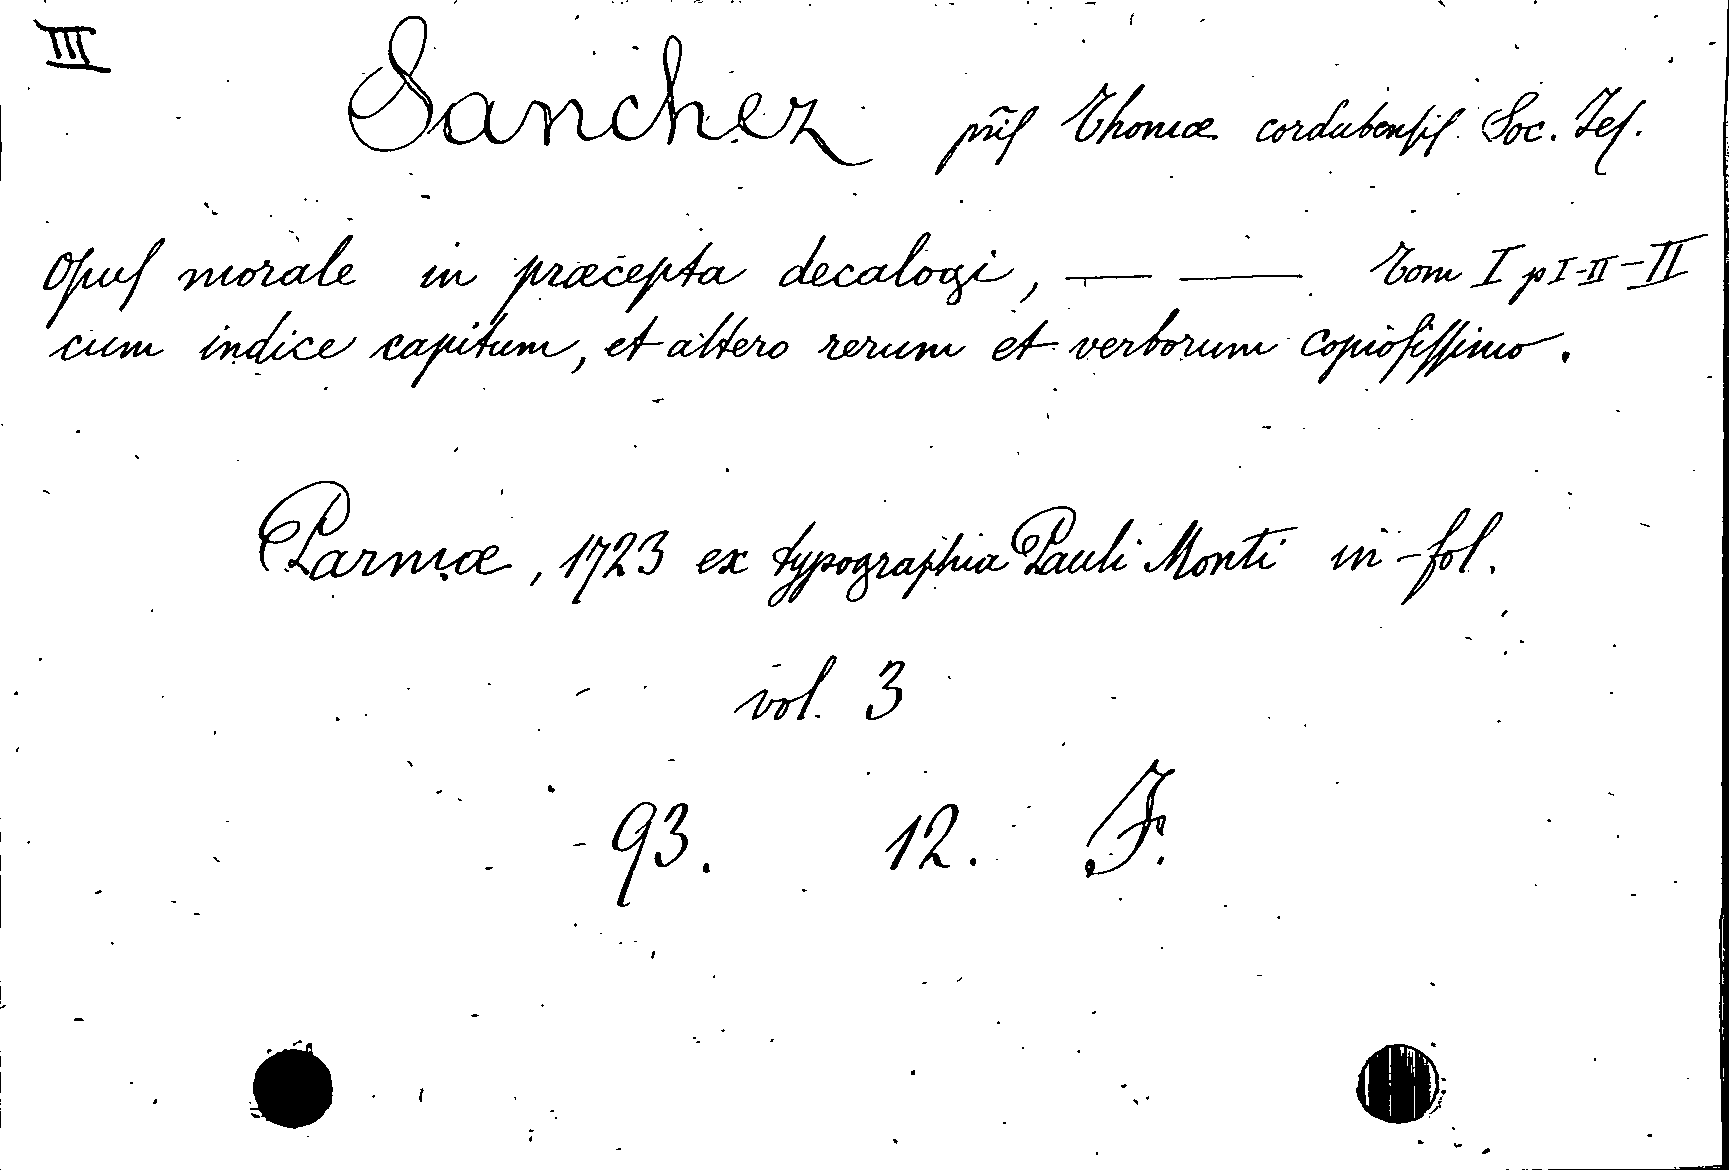 III
Sanchez p̃ris Thomæ cordubensis Soc. Jes.
Opus morale in præcepta decalogi, — — Tom I p I-II-II
cum indice capitum, et altero rerum et verborum copiosissimo.
Parmæ, 1723 ex typographia Pauli Monti in-fol.
vol. 3
93. 12. F.